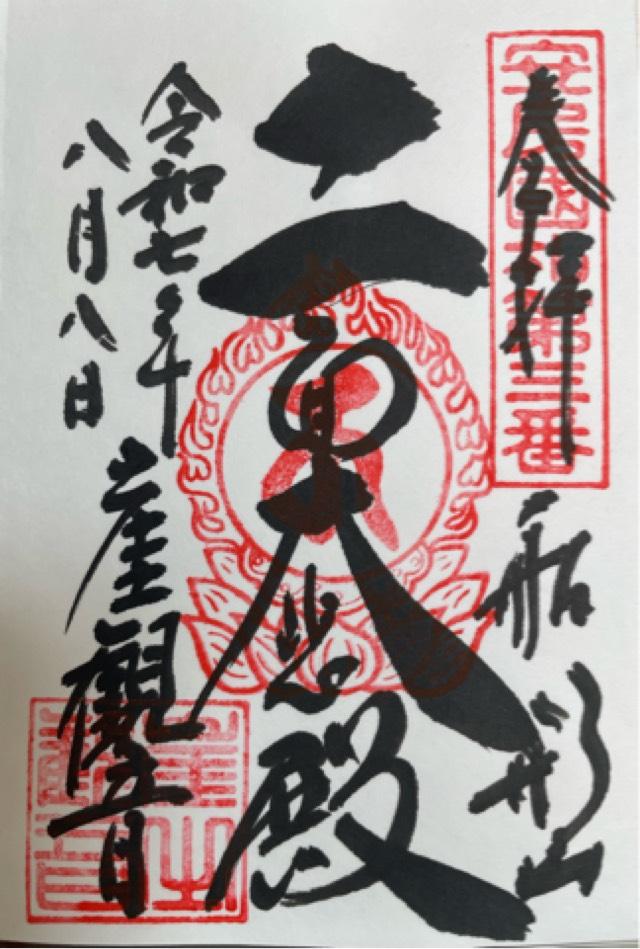 安房國札第三番
奉拝
船形山
大悲殿
令和七年
八月八日
崖觀音
崖之
観音